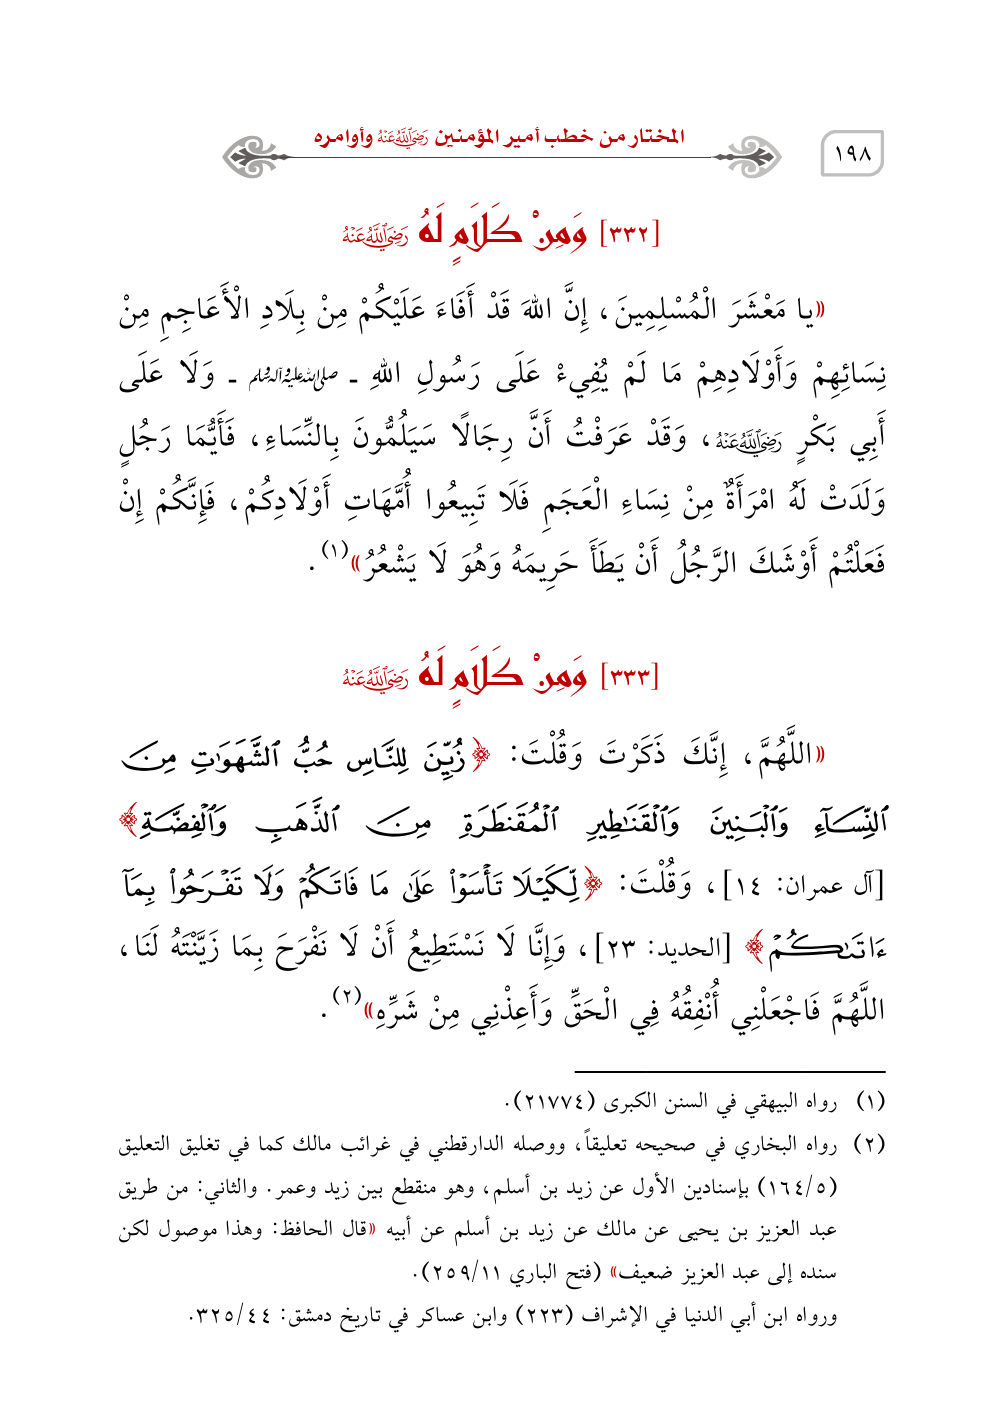 ١٩٨
المختار من خطب أمير المؤمنين رَضِيَ اللَّهُ عَنْهُ وأوامره
[٣٣٢] وَمِنْ كَلَامٍ لَهُ رَضِيَ اللَّهُ عَنْهُ
«يا مَعْشَرَ الْمُسْلِمِينَ، إِنَّ اللهَ قَدْ أَفَاءَ عَلَيْكُمْ مِنْ بِلَادِ الْأَعَاجِمِ مِنْ
نِسَائِهِمْ وَأَوْلَادِهِمْ مَا لَمْ يُفِيءْ عَلَى رَسُولِ اللهِ ـ صلى الله عليه وآله وسلم ـ وَلَا عَلَى
أَبِي بَكْرٍ رَضِيَ اللَّهُ عَنْهُ، وَقَدْ عَرَفْتُ أَنَّ رِجَالًا سَيَلُمُّونَ بِالنِّسَاءِ، فَأَيُّمَا رَجُلٍ
وَلَدَتْ لَهُ امْرَأَةٌ مِنْ نِسَاءِ الْعَجَمِ فَلَا تَبِيعُوا أُمَّهَاتِ أَوْلَادِكُمْ، فَإِنَّكُمْ إِنْ
فَعَلْتُمْ أَوْشَكَ الرَّجُلُ أَنْ يَطَأَ حَرِيمَهُ وَهُوَ لَا يَشْعُرُ»(١).
[٣٣٣] وَمِنْ كَلَامٍ لَهُ رَضِيَ اللَّهُ عَنْهُ
«اللَّهُمَّ، إِنَّكَ ذَكَرْتَ وَقُلْتَ: ﴿زُيِّنَ لِلنَّاسِ حُبُّ ٱلشَّهَوَٰتِ مِنَ
ٱلنِّسَآءِ وَٱلْبَنِينَ وَٱلْقَنَٰطِيرِ ٱلْمُقَنطَرَةِ مِنَ ٱلذَّهَبِ وَٱلْفِضَّةِ﴾
[آل عمران: ١٤]، وَقُلْتَ: ﴿لِّكَيْلَا تَأْسَوْا۟ عَلَىٰ مَا فَاتَكُمْ وَلَا تَفْرَحُوا۟ بِمَآ
ءَاتَىٰكُمْ﴾ [الحديد: ٢٣]، وَإِنَّا لَا نَسْتَطِيعُ أَنْ لَا نَفْرَحَ بِمَا زَيَّنْتَهُ لَنَا،
اللَّهُمَّ فَاجْعَلْنِي أُنْفِقُهُ فِي الْحَقِّ وَأَعِذْنِي مِنْ شَرِّهِ»(٢).
(١) رواه البيهقي في السنن الكبرى (٢١٧٧٤).
(٢) رواه البخاري في صحيحه تعليقاً، ووصله الدارقطني في غرائب مالك كما في تغليق التعليق
(١٦٤/٥) بإسنادين الأول عن زيد بن أسلم، وهو منقطع بين زيد وعمر. والثاني: من طريق
عبد العزيز بن يحيى عن مالك عن زيد بن أسلم عن أبيه «قال الحافظ: وهذا موصول لكن
سنده إلى عبد العزيز ضعيف» (فتح الباري ٢٥٩/١١).
ورواه ابن أبي الدنيا في الإشراف (٢٢٣) وابن عساكر في تاريخ دمشق: ٣٢٥/٤٤.